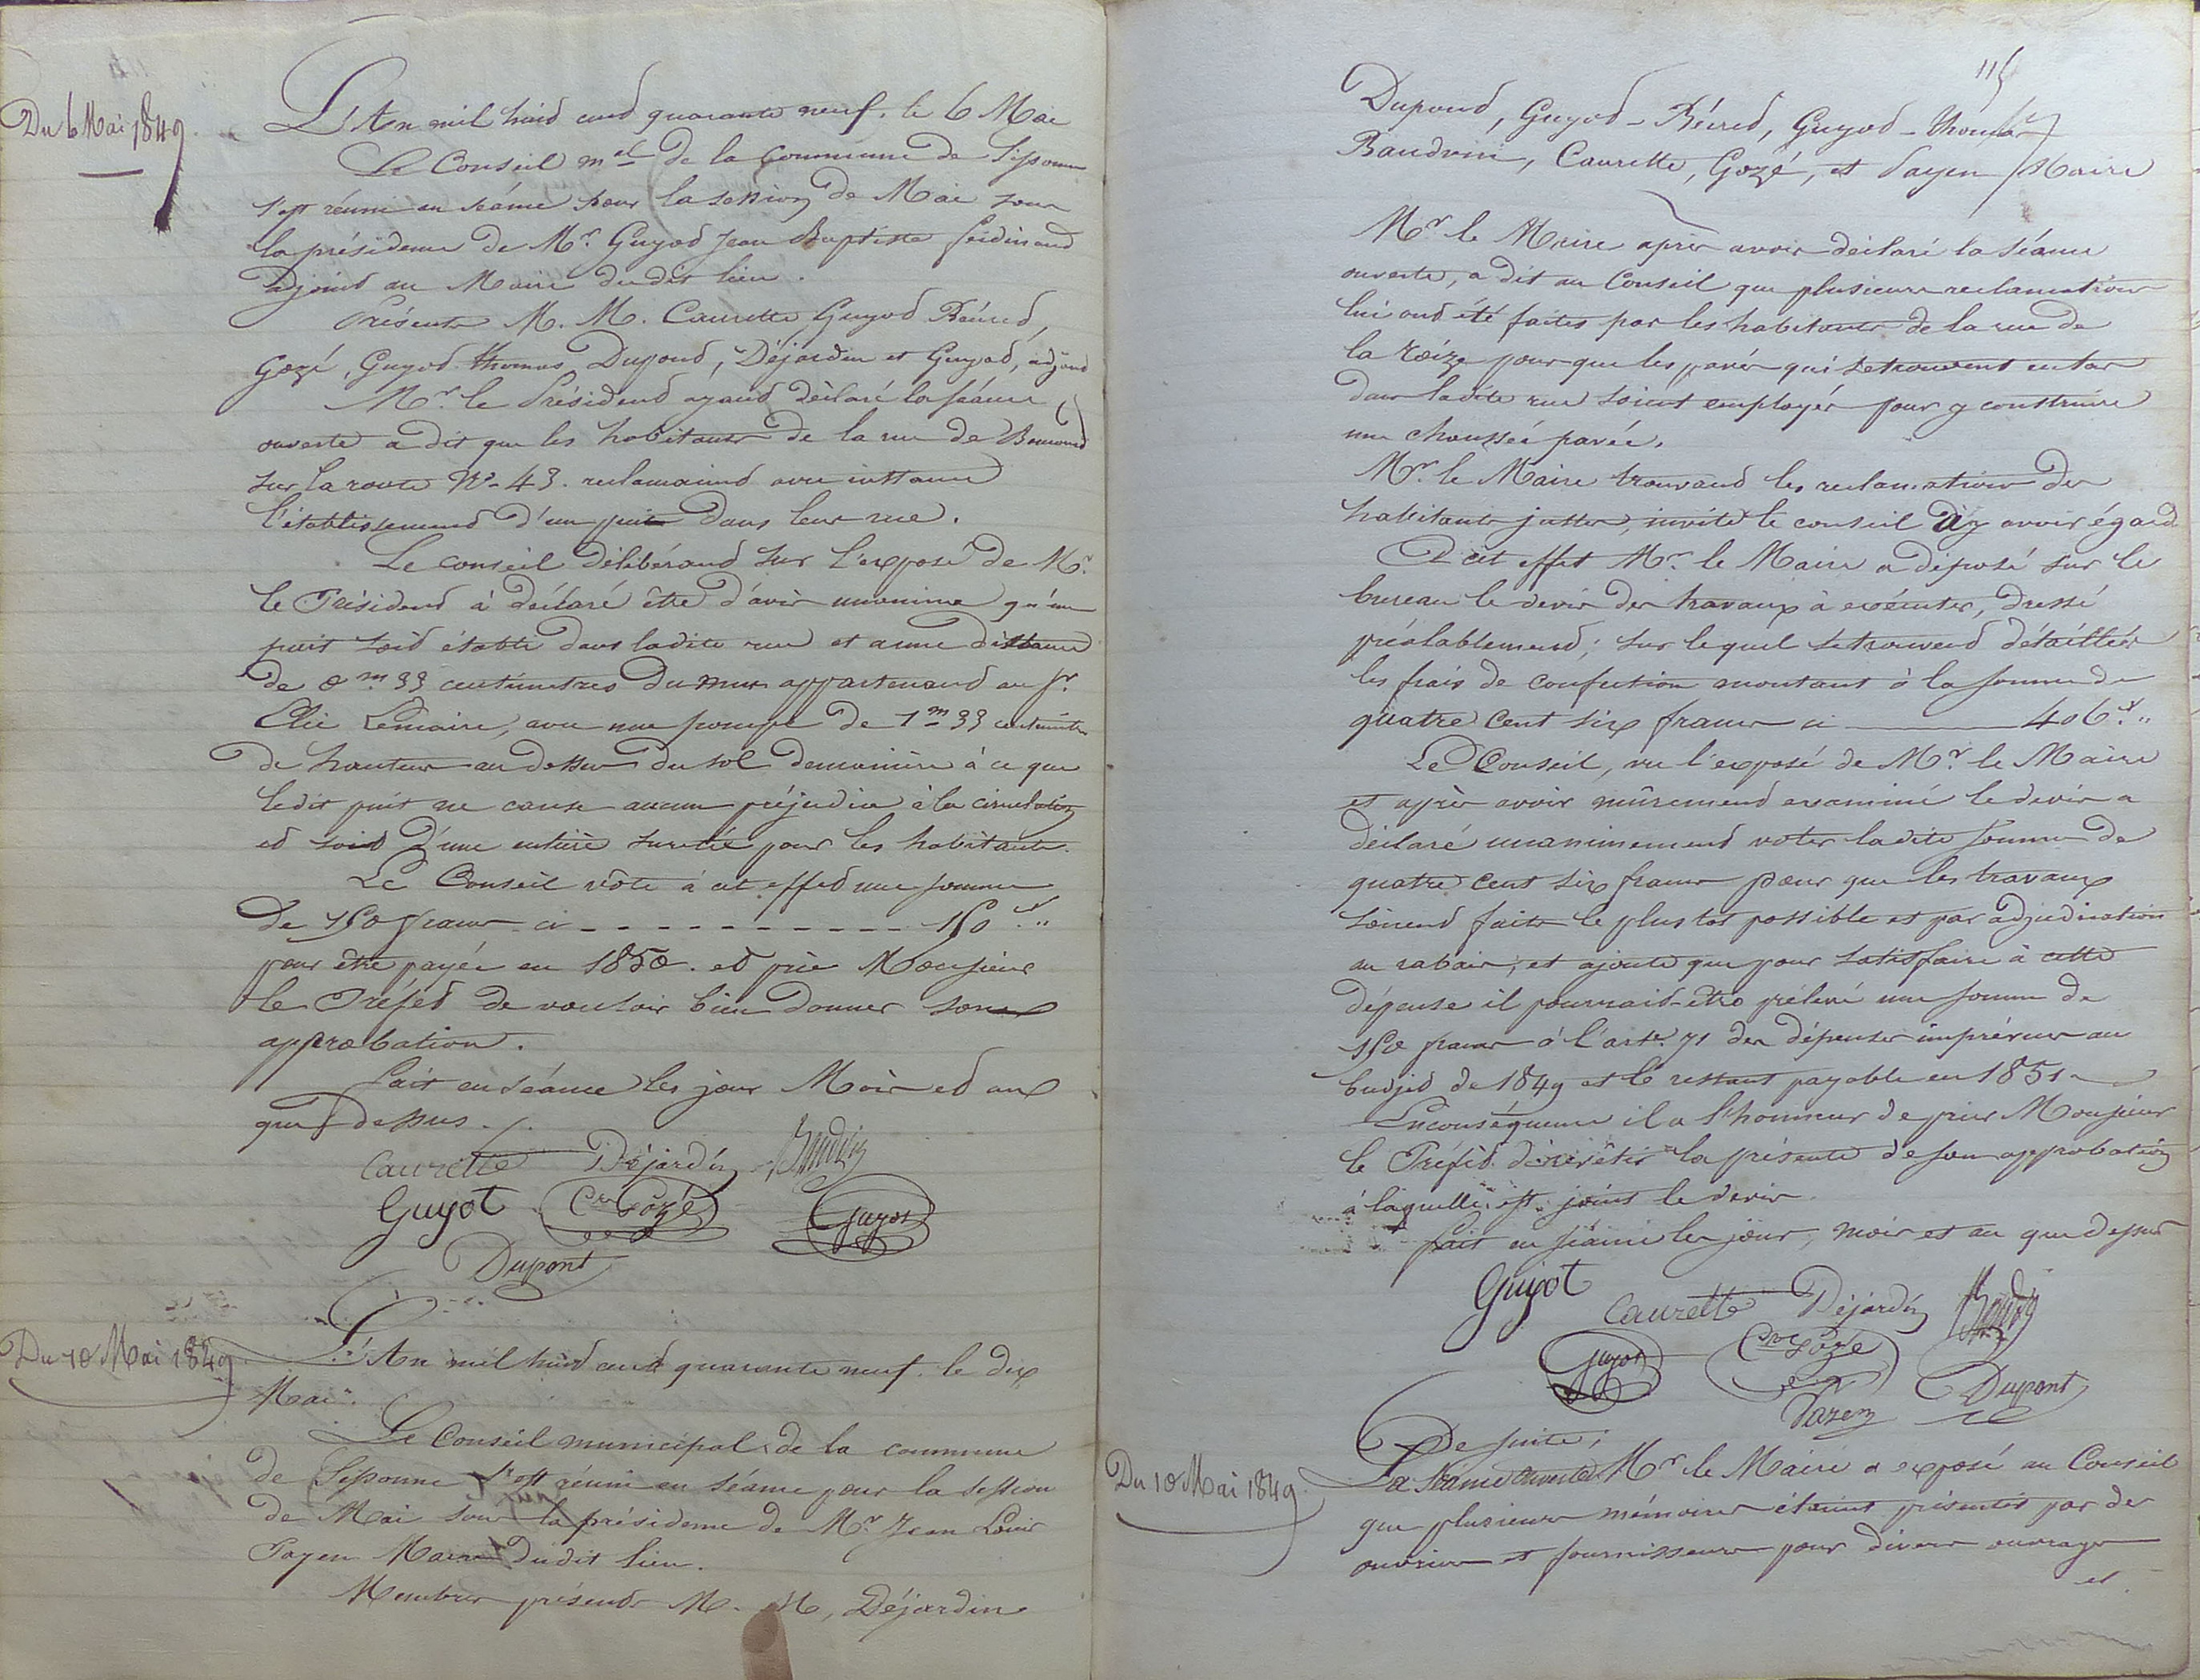 Du 6 Mai 1849
L'An mil huid cend quarante neuf. le 6 Mai
Le Conseil mal de la Commune de Sissonne
s'est réuni en séance pour la session de Mai sous
la présidence de Mr. Guyod Jean Baptiste ferdinand
adjoind au Maire du dit lieu.
Présents M. M. Caurette Guyod
Gozé, Guyod thomas Dupond, Déjardin et Guyod, adjoind
Mr. le Présidend ayand déclaré la séance
ouverte a dit que les habitants de la rue de
sur la route No. 43. reclamaiend avec instance
l'établissemend d'un puit dans leur rue.
Le conseil délibérand sur l'exposé de Mr.
le Présidend à déclaré être d'avis unanime qu'un
puit soid établi dans ladite rue et a une distance
de 0 m 33 centimetres du mur appartenand au Sr.
Elie Lemaire, avec une pompe de 1 m 33 centimetre
de hauteur au dessus du sol demanière à ce que
ledit puit ne cause aucun préjudice à la circulation
ed soid d'une entière sureté pour les habitants.
Le Conseil vôte à cet effed une somme
De 150 francs ci - - - - - - - - - - - 150 f "
pour être payée en 1850. ed prie Monsieur
le Préfed de vouloir bien donner son
approbation.
Fait en séance les jour Mois ed an
que dessus ./.
Caurette Déjardin Baudvin
Guyot Cre Gozé Guyot
Dupont
Du 10 Mai 1849
L'An mil huid cend quarante neuf. le dix
Mai.
Le Conseil municipal de la commune
de Sissonne s'est réuni en séance pour la session
de Mai sous la présidence de Mr Jean Louis
Payen Maire dudit lieu.
Membres présends M. M, Déjardin
115
Dupond, Guyod- Guyod-thomas
Baudvin, Caurette, Gozé, et Payen Maire
Mr le Maire après avoir déclaré la séance
ouverte, a dit au Conseil que plusieurs reclamations
lui ond été faites par les habitants de la rue de
la Roize pour que les pavés qui se trouvent en tas
dans ladite rue soient employés pour y construire
une chaussée pavée.
Mr. le Maire trouvand les reclamations des
habitants justes, invite le conseil à y avoir égard
A cet effet Mr. le Maire a déposé sur le
bureau le devis des travaux à exécuter, dressé
préalablemend; sur lequel se trouvend détaillés
les frais de confection montant à la somme de
quatre cent six francs ci 406 f "
Le Conseil, vu l'exposé de Mr. le Maire
et après avoir mûremend examiné le devis a
déclaré unanimemend voter ladite somme de
quatre cent six francs pour que les travaux
soiend faits le plus tot possible et par adjudication
au rabais, et ajoute que pour satisfaire à cette
dépense il pourraid-être prélevé une somme de
150 francs à l'arte. 71 des dépenses imprévues au
budjed de 1849 et le restant payable en 1851.
Enconséquence il a l'honneur de prier Monsieur
le Préféd de revêtir la présente de son approbation
à laquelle est joint le devis
fait en séance les jour, mois et an que dessus
Guyot Caurette Déjardin Baudvin
Guyot Cre Gozé Dupont
Payen
Du 10 Mai 1849
De suite;
La Séance ouverte Mr le Maire a exposé au Conseil
que plusieurs mémoires étaient présentés par des
ouvriers et fournisseurs pour divers ouvrages
et